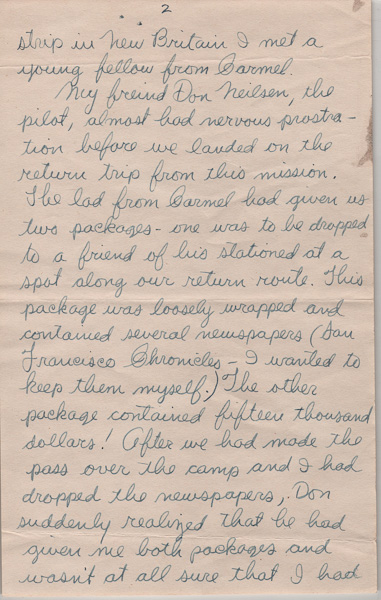 2
strip in New Britain I met a
young fellow from Carmel.
My freind Don Neilsen, the
pilot, almost had nervous prostra-
tion before we landed on the
return trip from this mission.
The lad from Carmel had given us
two packages - one was to be dropped
to a friend of his stationed at a
spot along our return route. This
package was loosely wrapped and
contained several newspapers (San
Francisco Chronicles - I wanted to
keep them myself.) The other
package contained fifteen thousand
dollars! After we had made the
pass over the camp and I had
dropped the newspapers, Don
suddenly realized that he had
given me both packages and
wasn't at all sure that I had